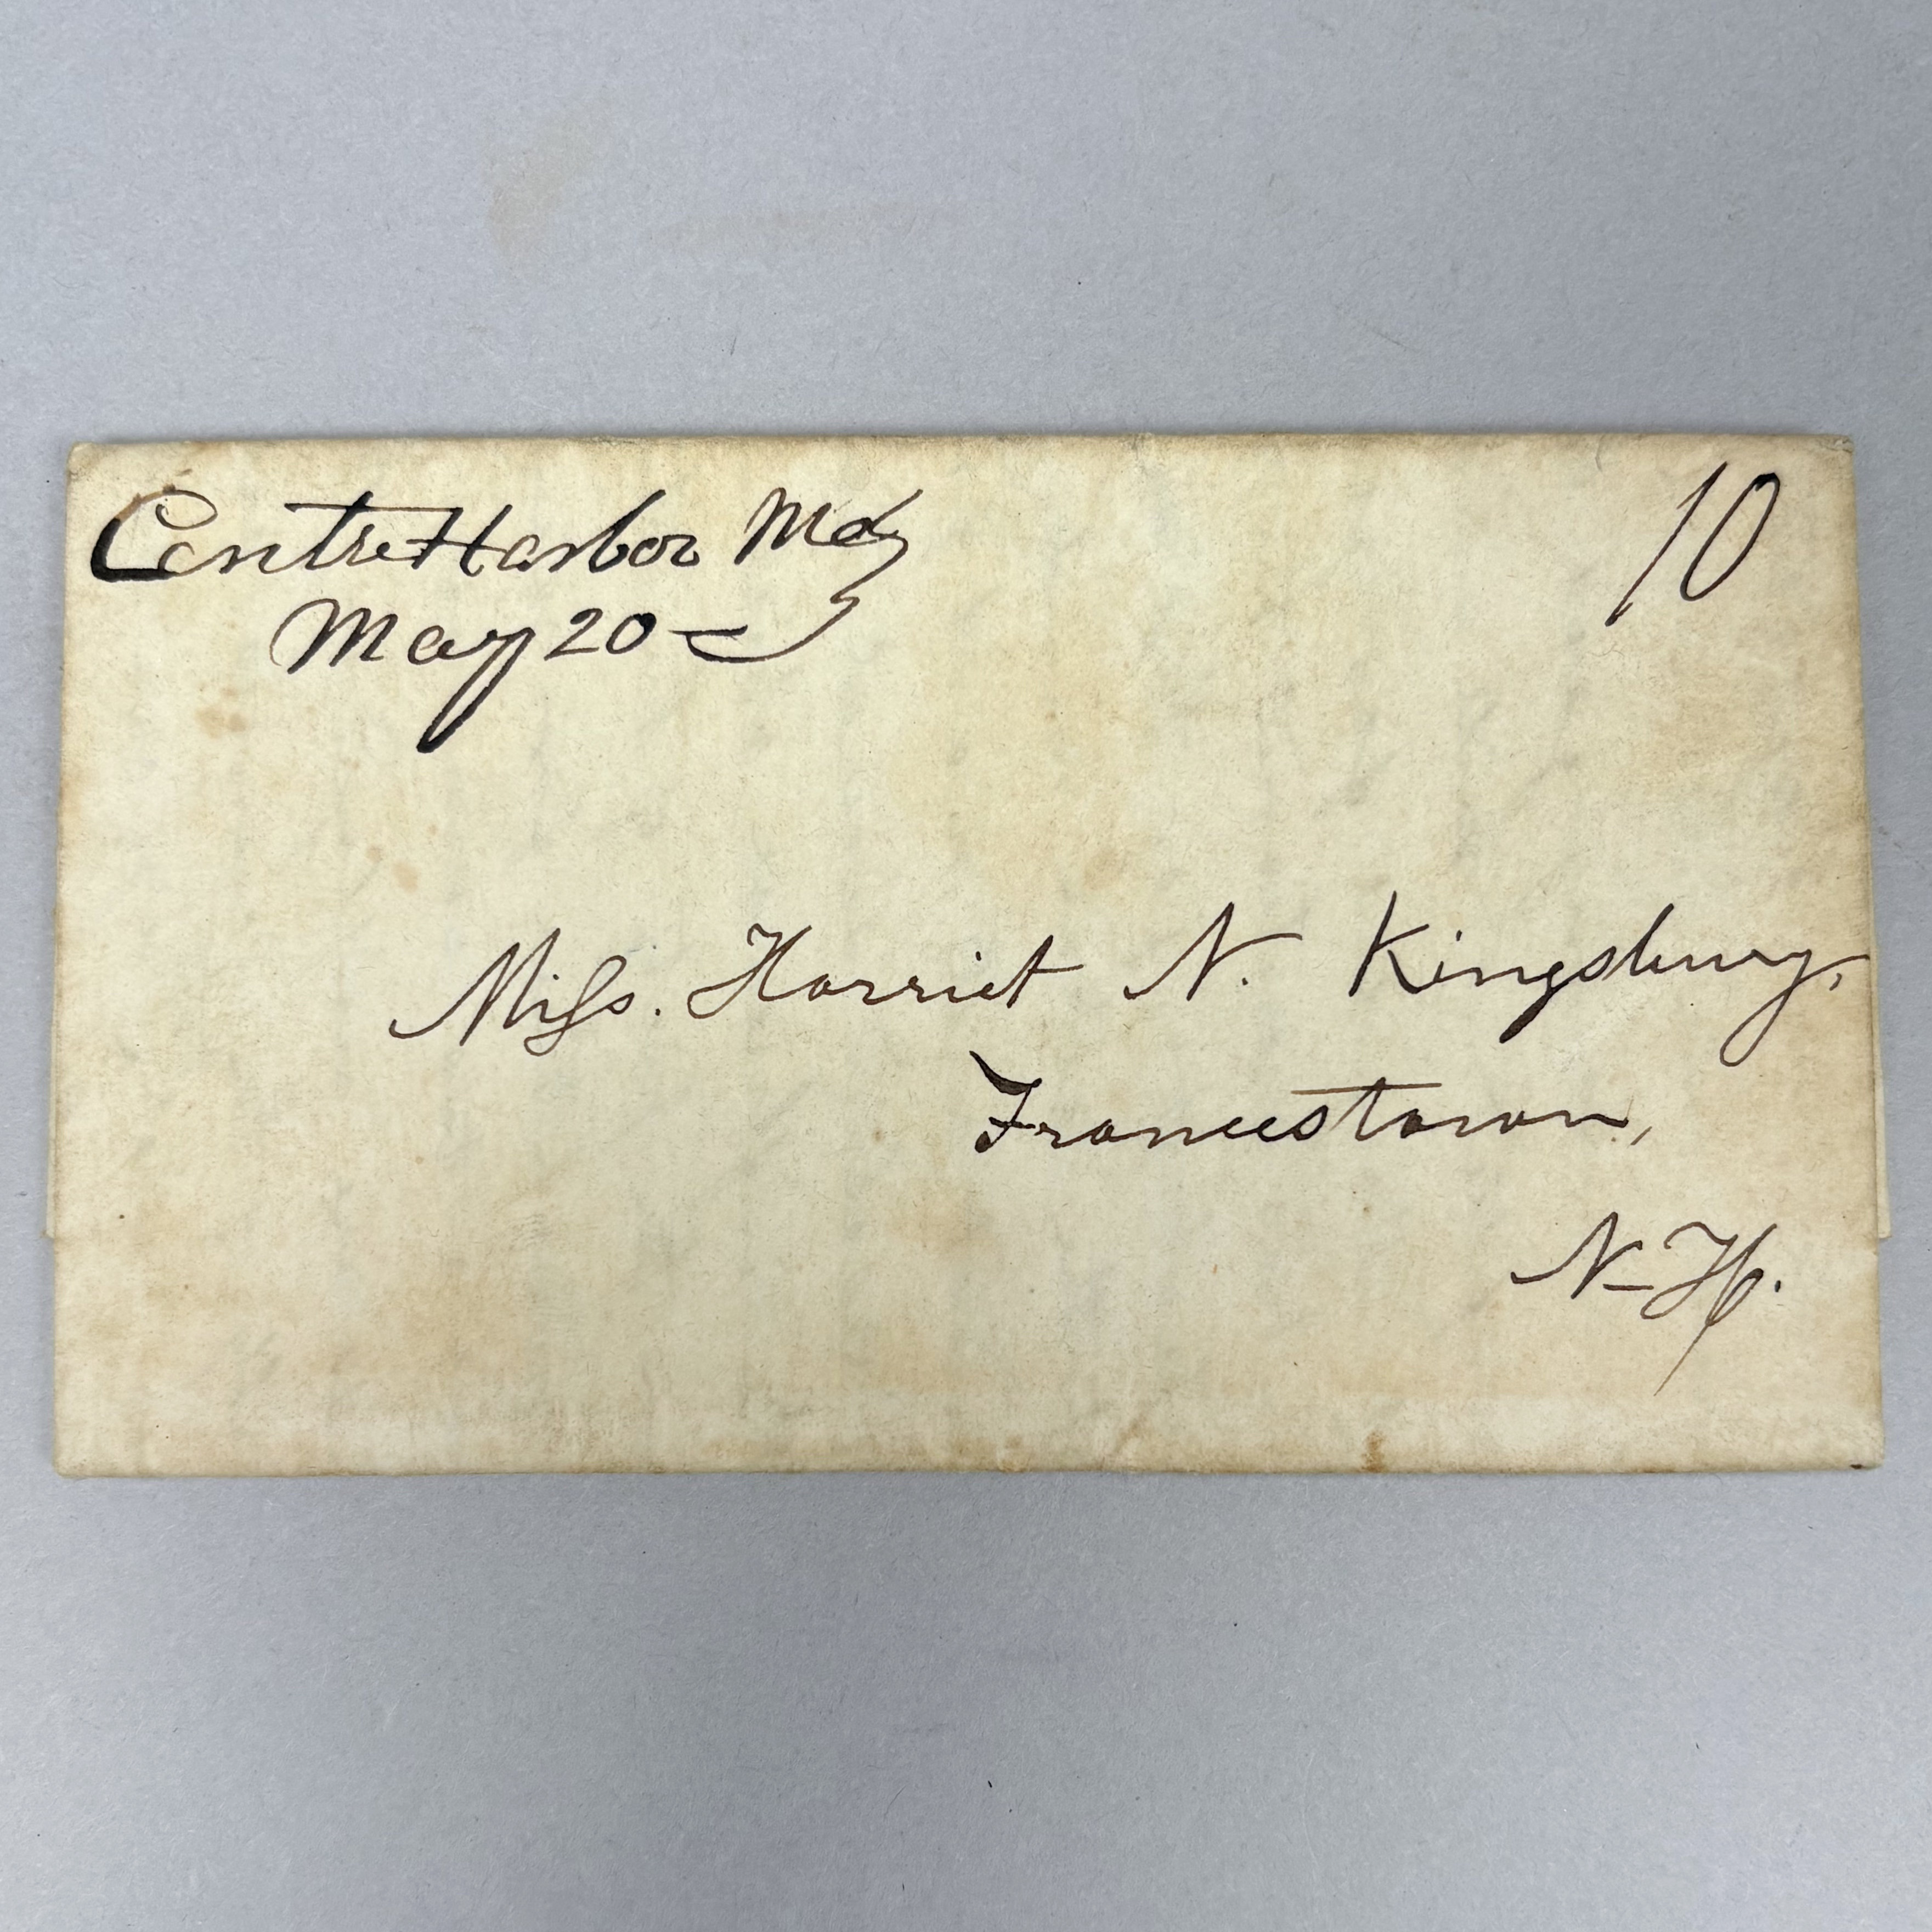 Centre Harbor Md
May 20
10
Miss. Harriet N. Kingsbury,
Francestown,
N-H.